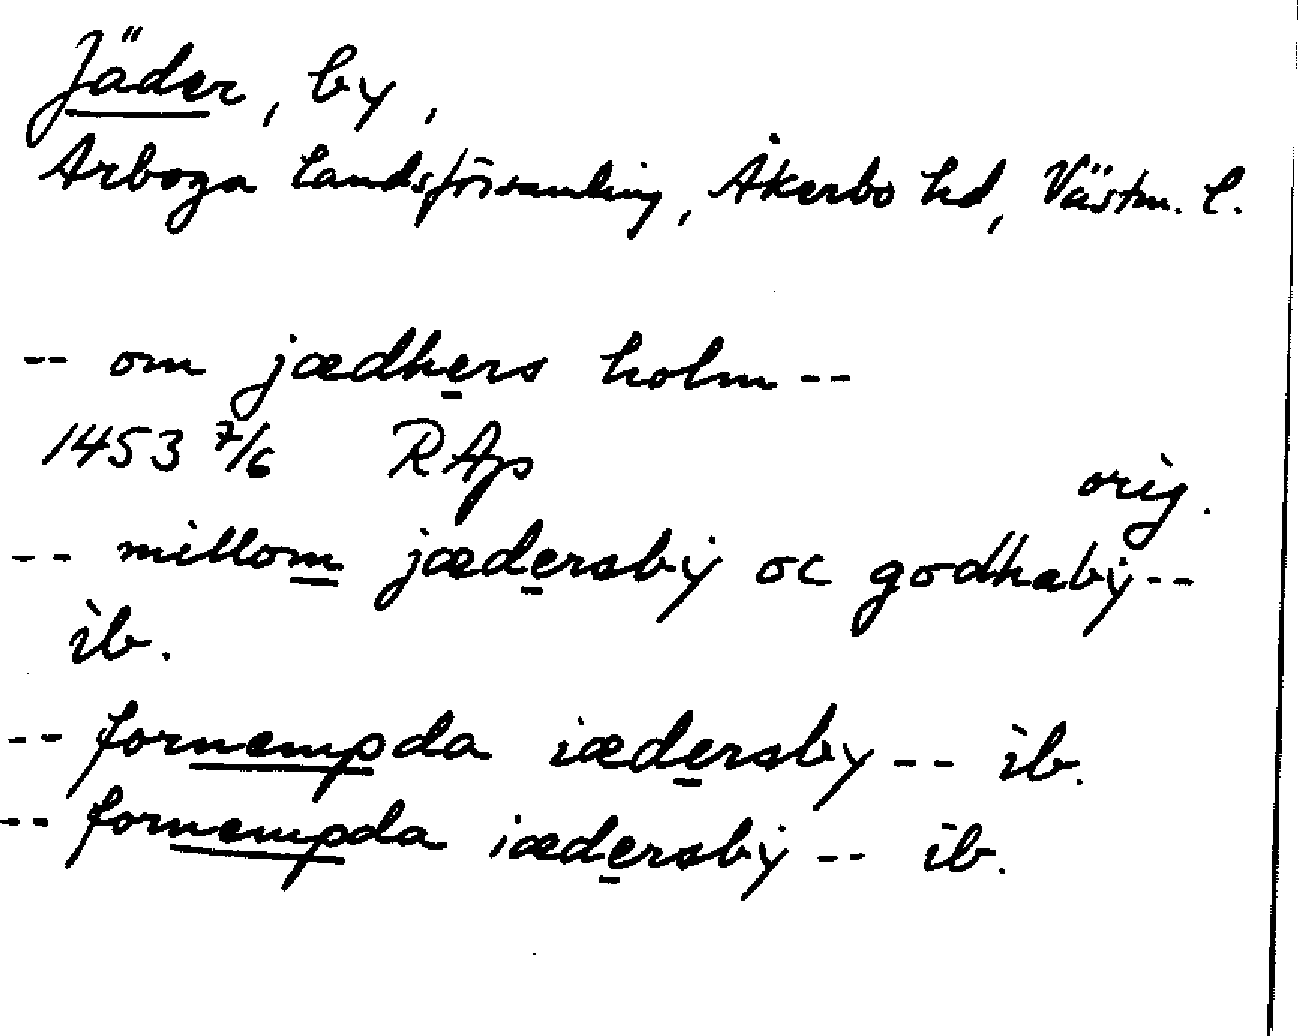 Jäder, by,
Arboga landsförsamling, Åkerbo hd, Västm. l.
-- om jædhers holm --
1453 7/6 RAp orig.
-- millom jædersbÿ oc godhabÿ --
ib.
-- fornempda iædersby -- ib.
-- fornempda iædersbÿ -- ib.